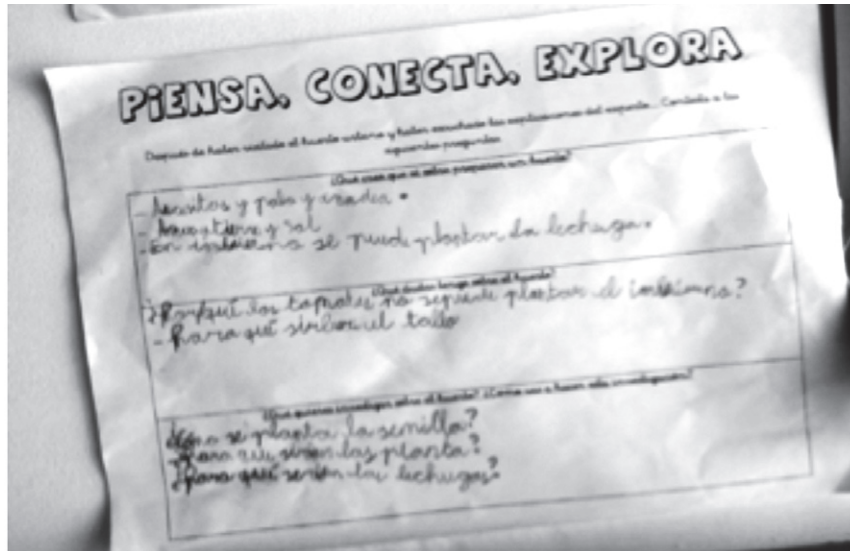 PiENSA, CONECTA, EXPLORA
Después de haber visitado el huerto urbano y haber escuchado las explicaciones del experto... Contesta a las
siguientes preguntas
¿Qué crees que es sobre preparar un huerto?
- y pala y
- Agua, tierra y sol
- En se puede plantar la lechuga.
¿Qué dudas tengo sobre el huerto?
¿Por qué los tomates no se puede plantar el
- Para qué el tallo
¿Qué quieres investigar sobre el huerto? ¿Cómo vas a hacer esta investigación?
¿Cómo se planta la semilla?
¿Para que las planta?
¿Para qué las lechugas?